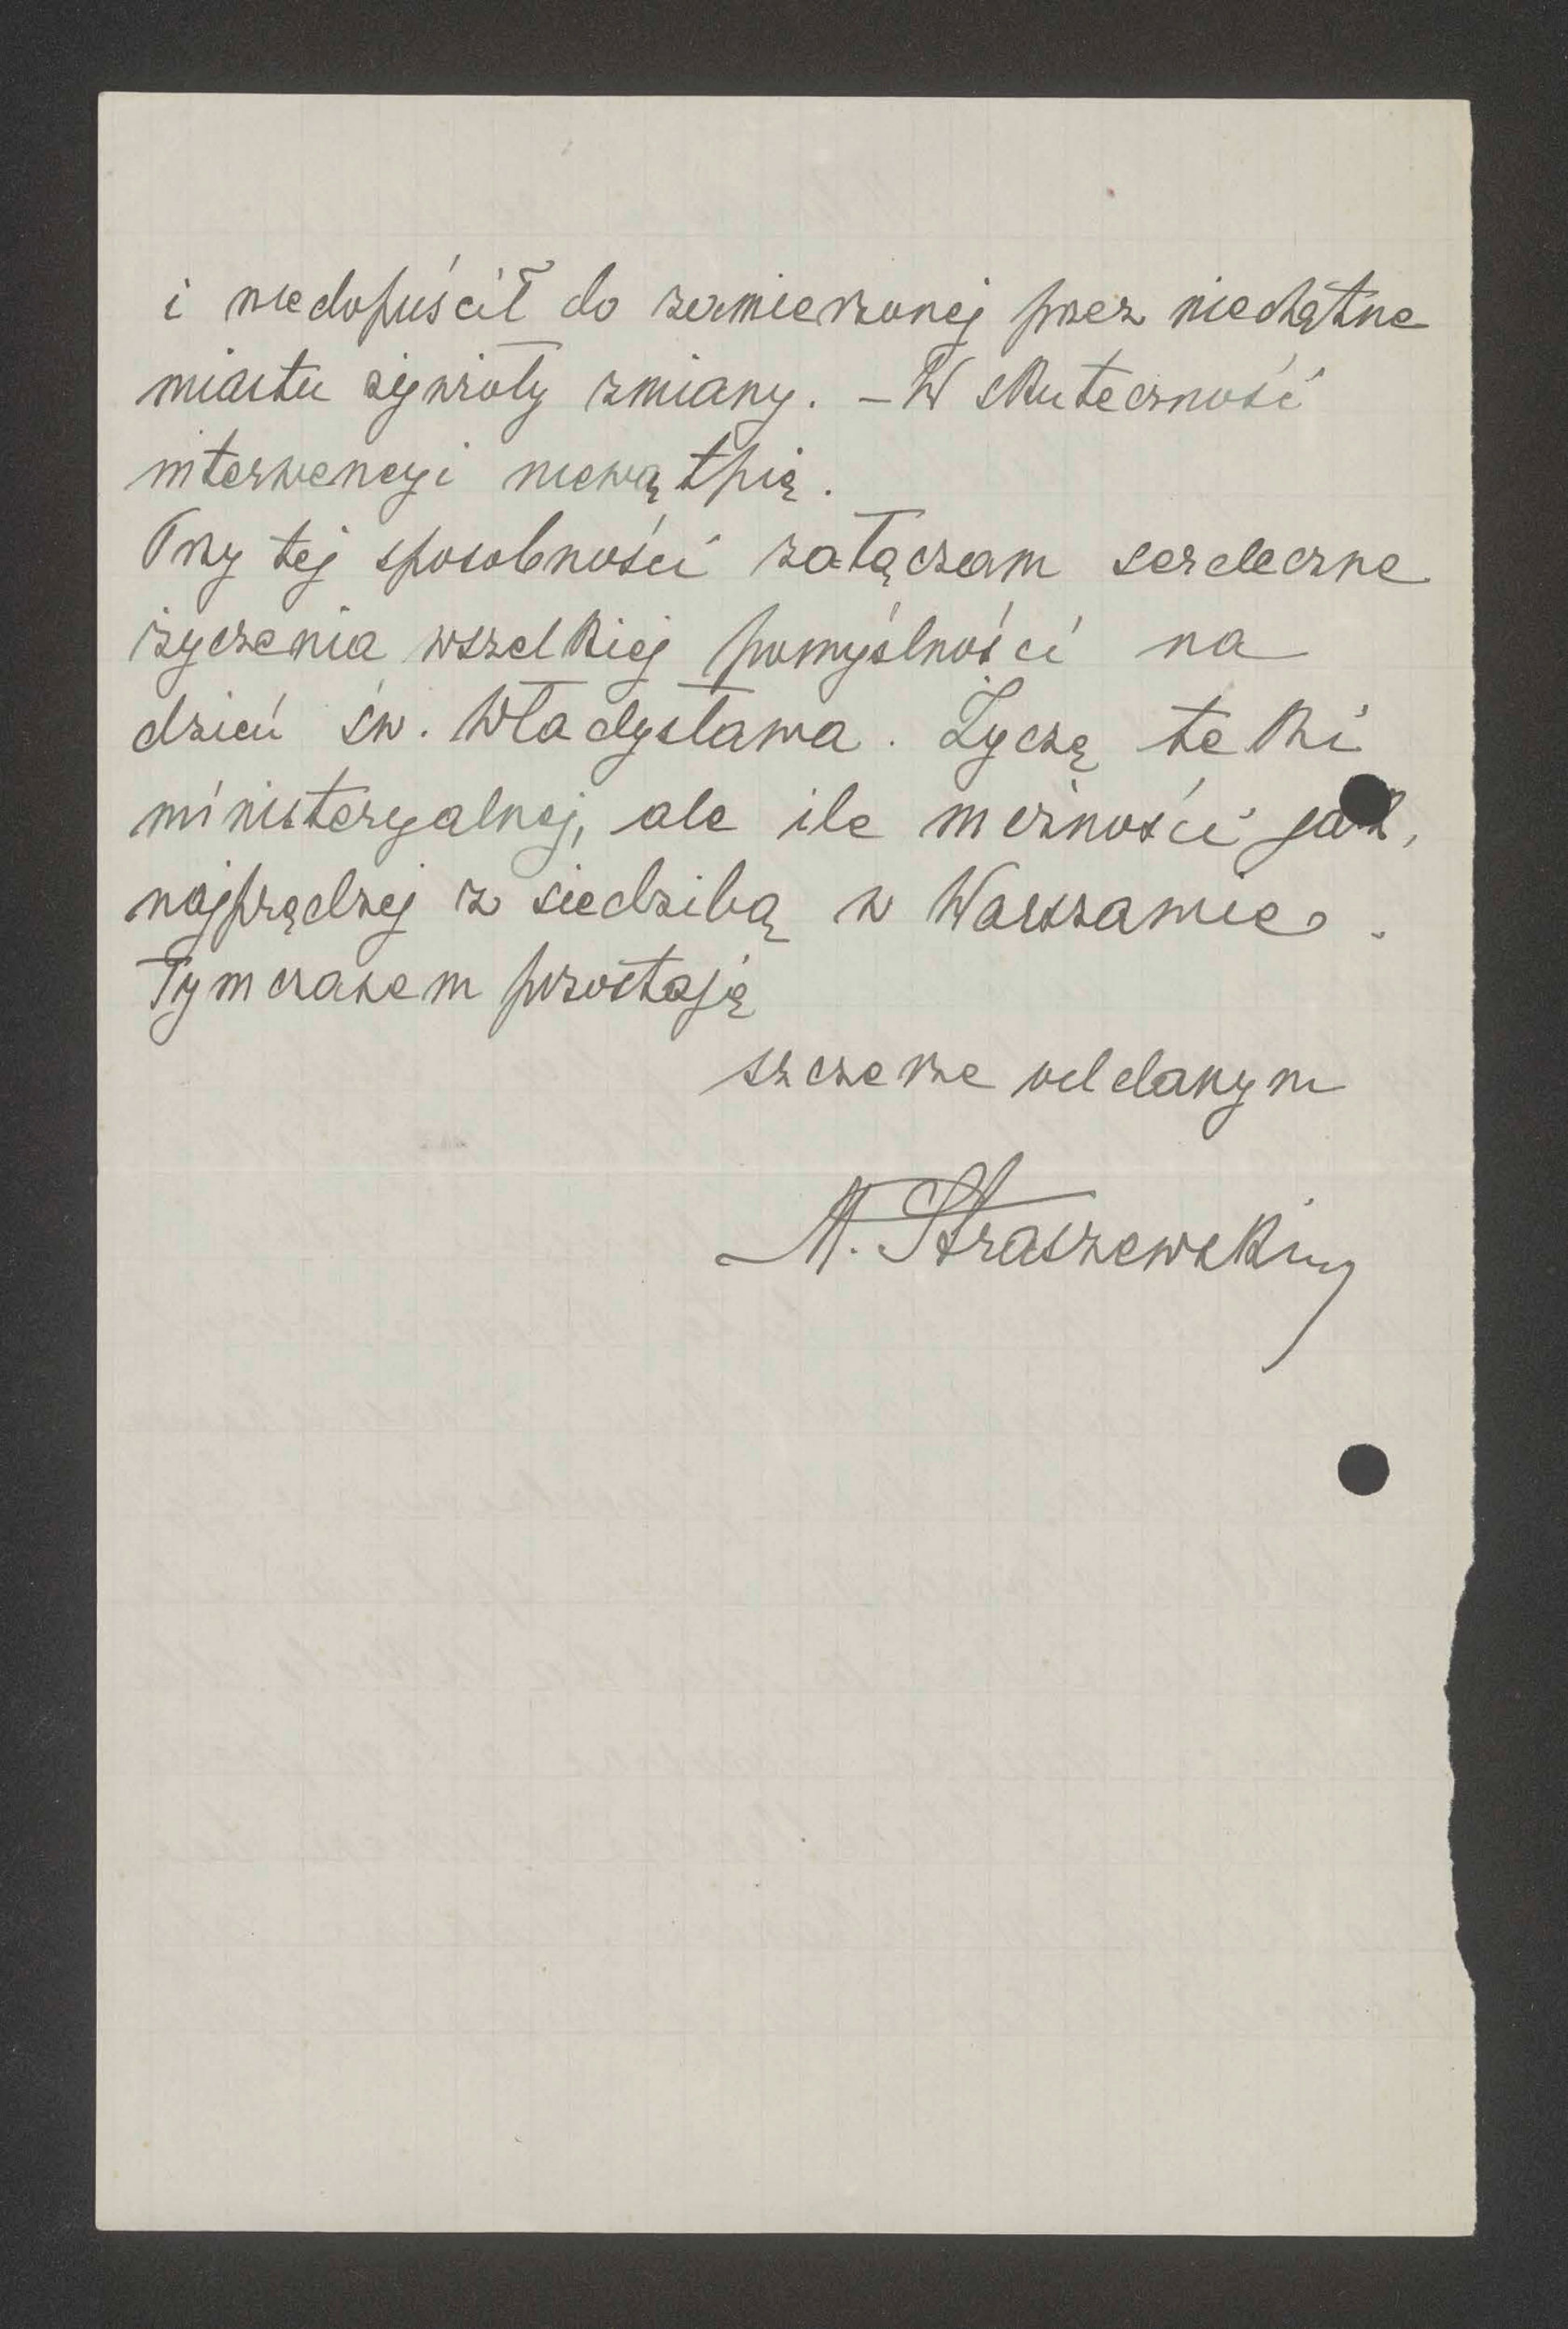 i niedopuścił do zamierzonej przez niechętne
miastu żywioły zmiany. – W skuteczność
interwencyi niewątpię.
Przy tej sposobności załączam serdeczne
życzenia wszelkiej pomyślności na
dzień św. Władysława. Życzę teki
ministeryalnej, ale ile możności jak,
najprędzej z siedzibą w Warszawie.
Tymczasem pozostaję
szczerze oddanym
M. Straszewski